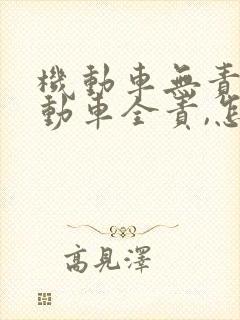 機動車無責
動車全責,怎
高見澤